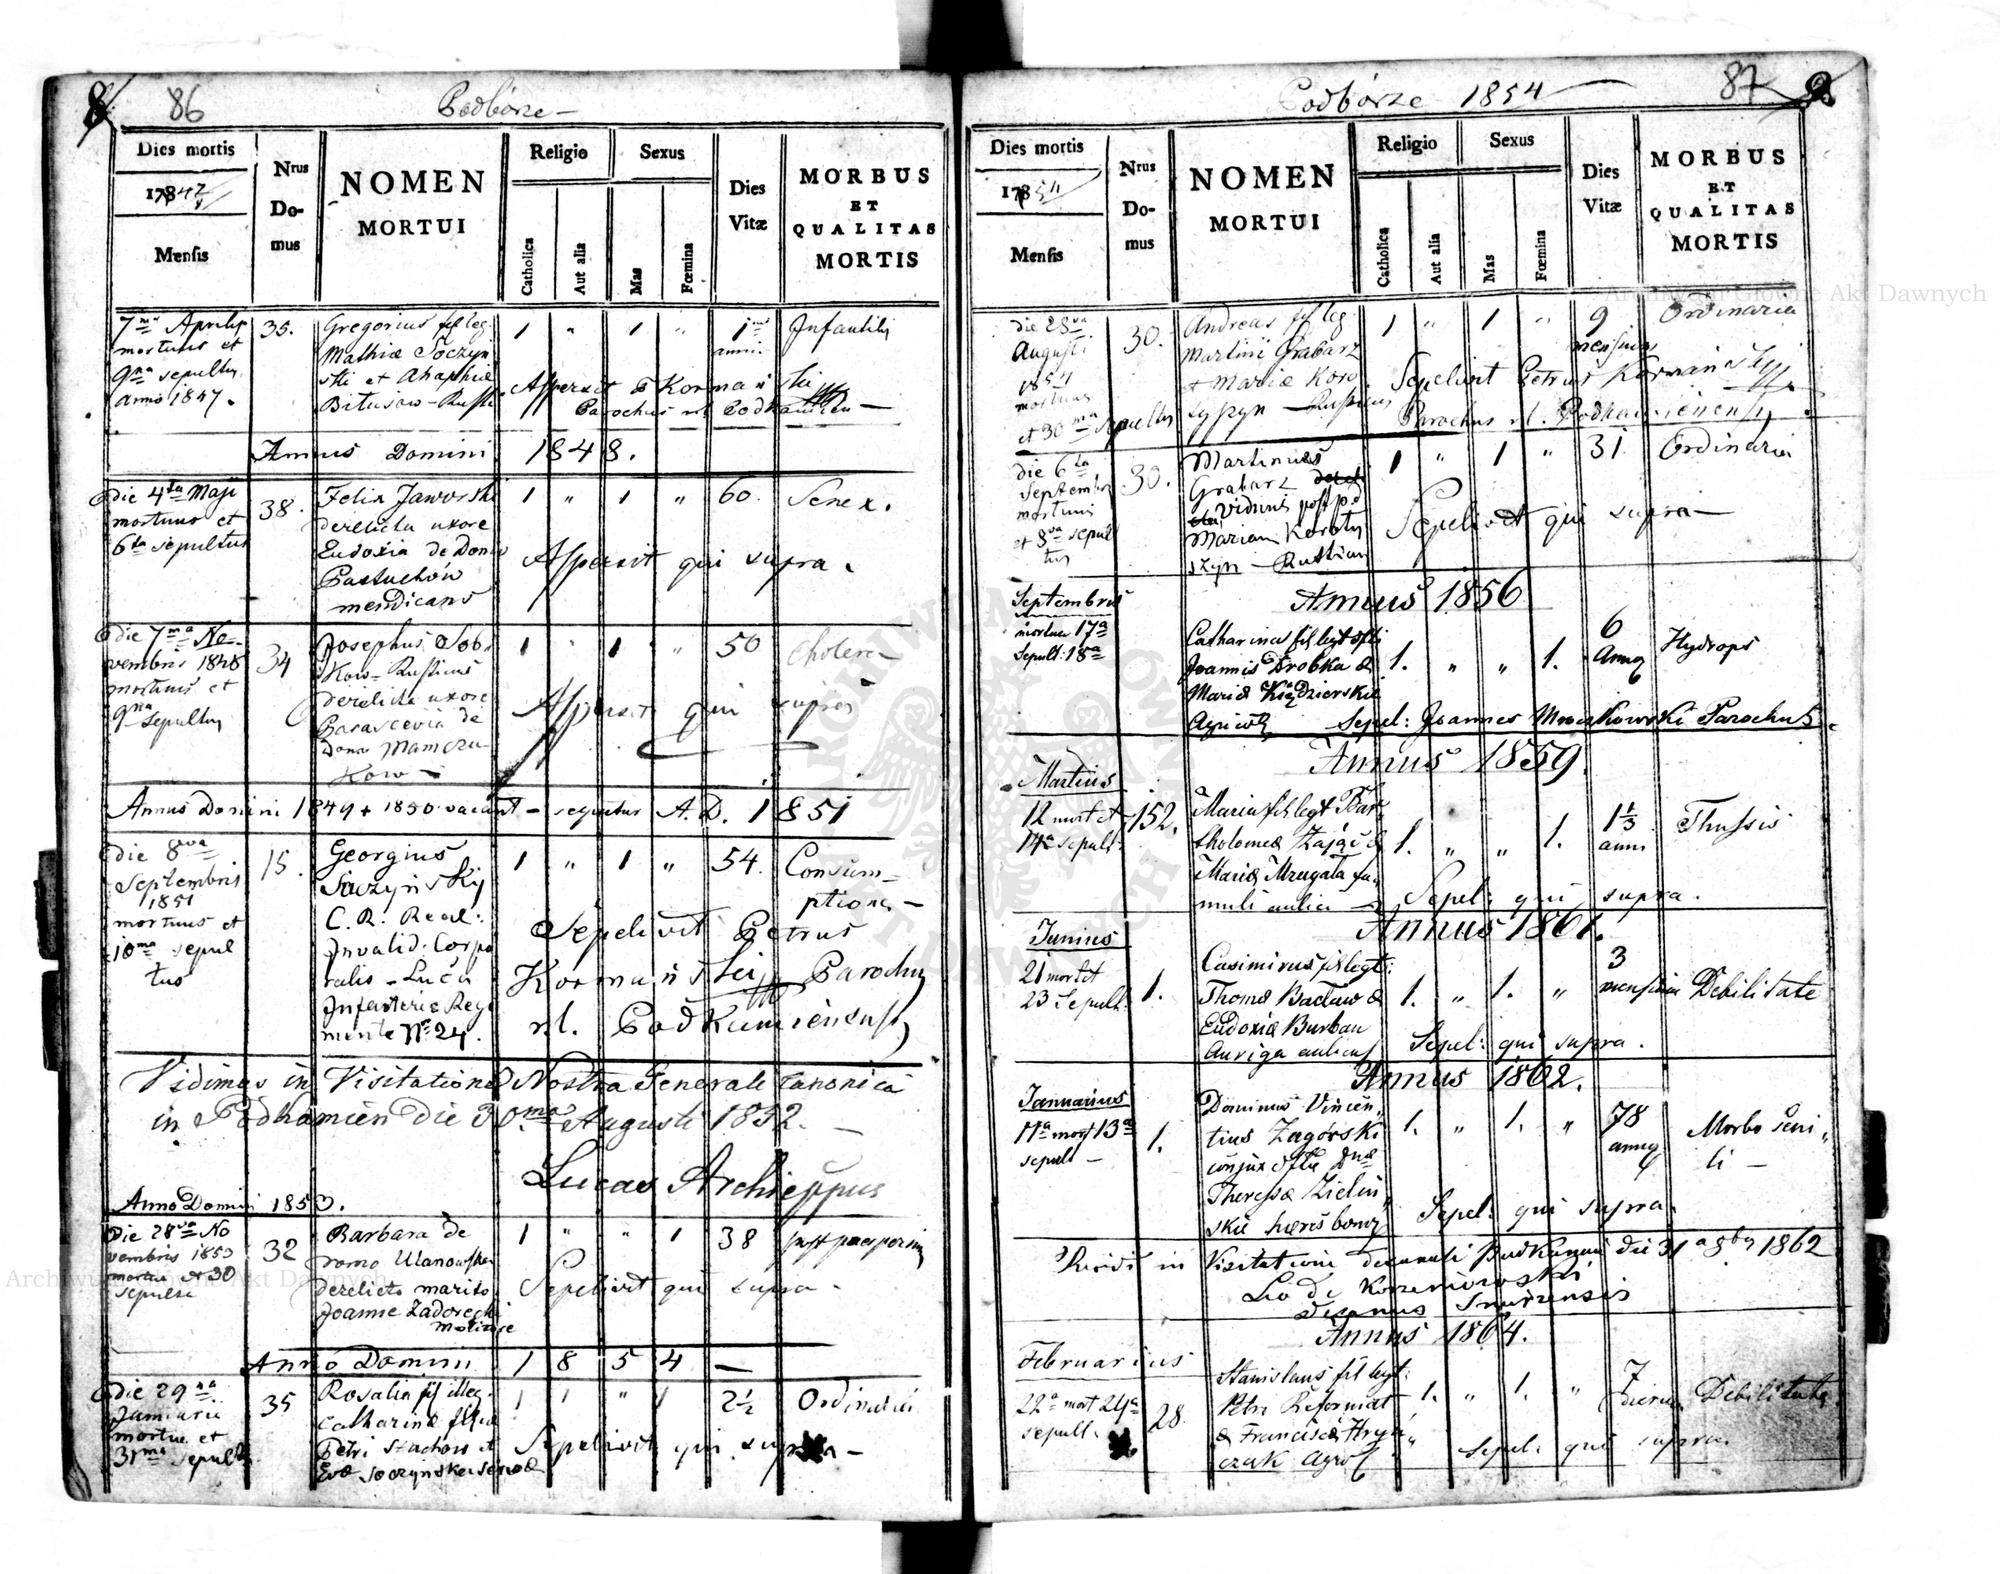 8 86 Podbórze —
Dies mortis
1847
Mensis
Nrus Domus
NOMEN
MORTUI
Religio
Catholica
Aut alia
Sexus
Mas
Fœmina
Dies Vitæ
MORBUS
ET
QUALITAS
MORTIS
7ma Aprilis 35. Gregorius fil leg. 1 " 1 " 1 Infantilis
mortuus et Mathiæ Soczyń anni
9na sepultus ski et Ahaphiæ Aspersit P Kormański
anno 1847. Bitusow – Rusti Parochus rl Podkamien —
Annus Domini 1848.
Die 4ta Maji 38. Felix Jaworski 1 " 1 " 60. Senex.
mortuus et derelicta uxore
6ta sepultus Eudoxia de Domo Aspersit qui supra.
Pastuchów
mendicans
Die 7ma No- 34 Josephus Sob 1 " 1 " 50 Cholera —
vembris 1848 kow – Rusticus
mortuus et derelicta uxore Aspersit qui supra
9na sepultus Parascevia de
Domo Mamczu-
kow —
Annus Domini 1849 + 1850 vacant – sequitur A.D. 1851
Die 8va 15. Georgius 1 " 1 " 54. Consum-
Septembris Soczyński ptione —
1851 C. R. Real:
mortuus et Invalid: Corpo Sepelivit Petrus
10ma sepul ralis – Luca Kormański Parochus
tus Infanteriæ Regi rl. Podkamienensis
mente No 24.
Vidimus in Visitatione Nostra Generali Canonica
in Podkamień Die 30ma Augusti 1852. —
Lucas Archieppus
Anno Domini 1853.
Die 28va No 32 Barbara de 1 " " 1 38 post puerperium
vembris 1853 domo Ulanowska
mortua et 30 derelicto marito Sepelivit qui supra —
sepulta Joanne Zadorecki
Molitore
Anno Domini 1854 —
Die 29na 35 Rosalia fil illeg. 1 1 " 1 2½ Ordinaria
Januarii Catharinæ filiæ
mortua et Petri Stachow et Sepelivit qui supra —
31ma sepulta Evæ Soczyńska
Podbórze 1854 — 87 9
Dies mortis
1854
Mensis
Nrus Domus
NOMEN
MORTUI
Religio
Catholica
Aut alia
Sexus
Mas
Fœmina
Dies Vitæ
MORBUS
ET
QUALITAS
MORTIS
die 28va 30. Andreas fil leg. 1 " 1 " 9 Ordinaria
Augusti Martini Grabarz mensium
1854 & Mariæ Koro Sepelivit Petrus Kormański
mortuus tyszyn – Rusticus Parochus rl. Podkamienensis
et 30ma sepultus
die 6ta 30. Martinus 1 " 1 " 31. Ordinaria
Septembris Grabarz
mortuus viduus post p.d
et 8va sepul Mariam Koroty Sepelivit qui supra —
tus szyn – Rustican
Annus 1856
Septembris
mortua 17a Catharina fil legt 1. " " 1. 6 Hydrops
Sepult: 18va Joannis Drobka & Annor
Mariæ Kiędzierskie
Agricol Sepel: Joannes Mroczkowski Parochus.
Annus 1859.
Martius
12 mort et 152. Maria fil legt Bar- 1. " " 1. 1⅓ Thussis
14a sepult: tholomei Zając & anni
Mariæ Mrugała fa-
muli aulici — Sepel: qui supra.
Annus 1861.
Junius
21 mort et 1. Casimirus fil legt: 1. " 1. " 3 Debilitate
23 Sepult: Thomæ Bacław & mensium
Eudoxiæ Burban
Auriga aulicus Sepel: qui supra.
Annus 1862.
Januarius
11a mort 13a 1. Dominus Vincen 1. " 1. " 78 Morbo seni
sepult — tius Zagórski annor li —
conjux Dnæ
Theresæ Zieliń
skie hæres bonor Sepel: qui supra.
Vidi in Visitatione decanali Podkamień die 31a 8bris 1862
Korzeniowski
Decanus
Annus 1864.
Februarius
22a mort 24a 28. Stanislaus fil legt: 1. " 1. " 7 Debilitate
sepult. Petri Reformat dierum
& Franciscæ Hryń
czak Agrol Sepel: qui supra.
Archiwum Główne Akt Dawnych
Archiwum Główne Akt Dawnych
ARCHIWUM GŁÓWNE AKT DAWNYCH